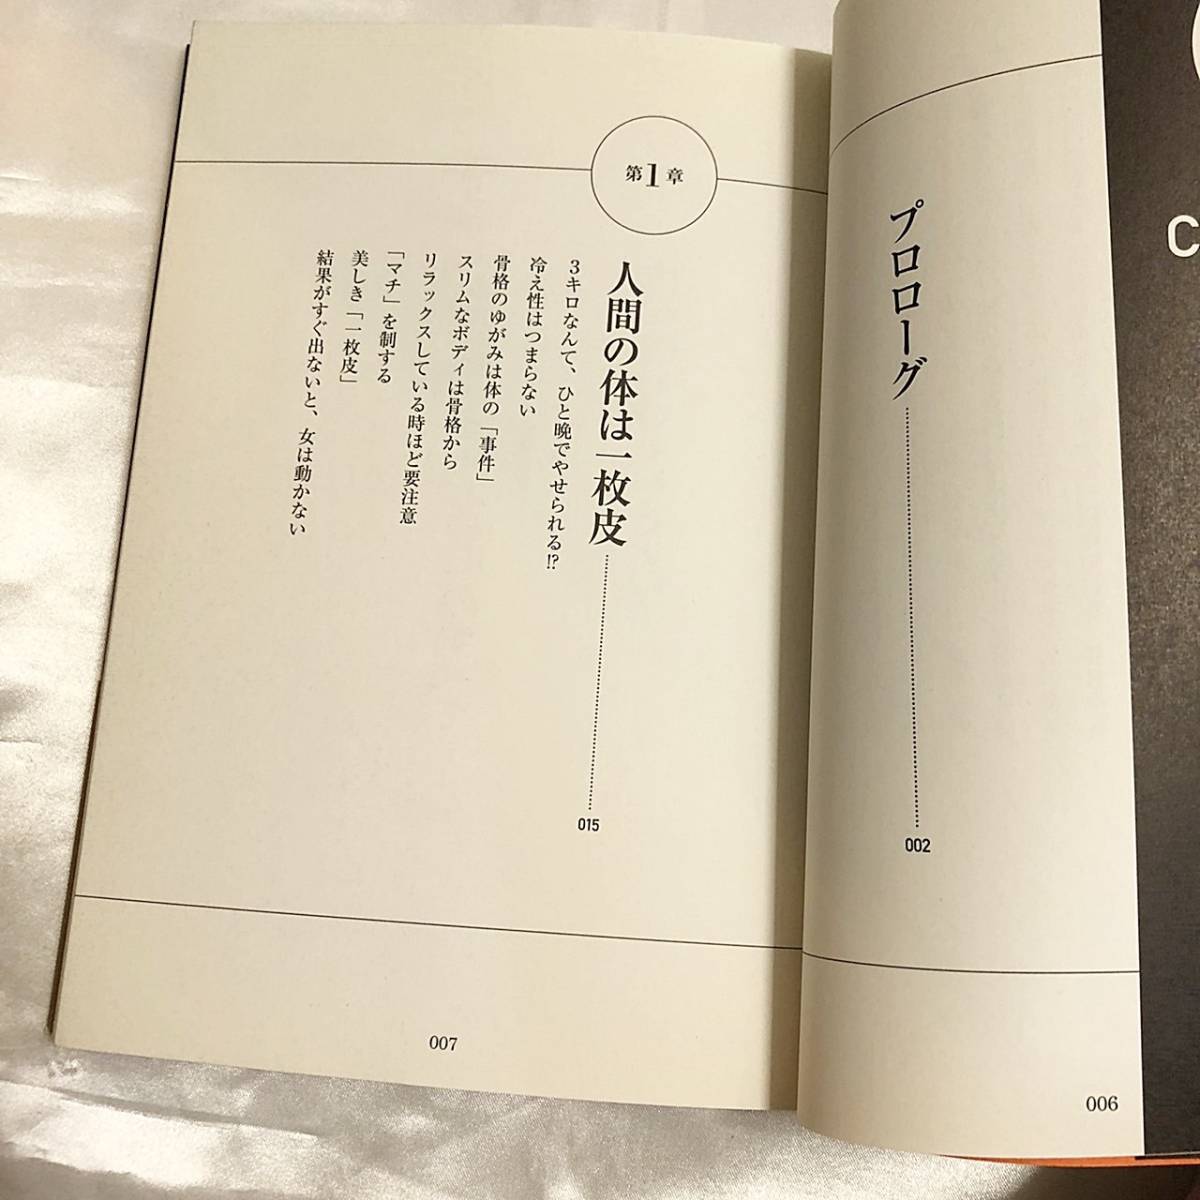 プロローグ
002
006
第1章
人間の体は一枚皮
015
3キロなんて、ひと晩でやせられる!?
冷え性はつまらない
骨格のゆがみは体の「事件」
スリムなボディは骨格から
リラックスしている時ほど要注意
「マチ」を制する
美しき「一枚皮」
結果がすぐ出ないと、女は動かない
007